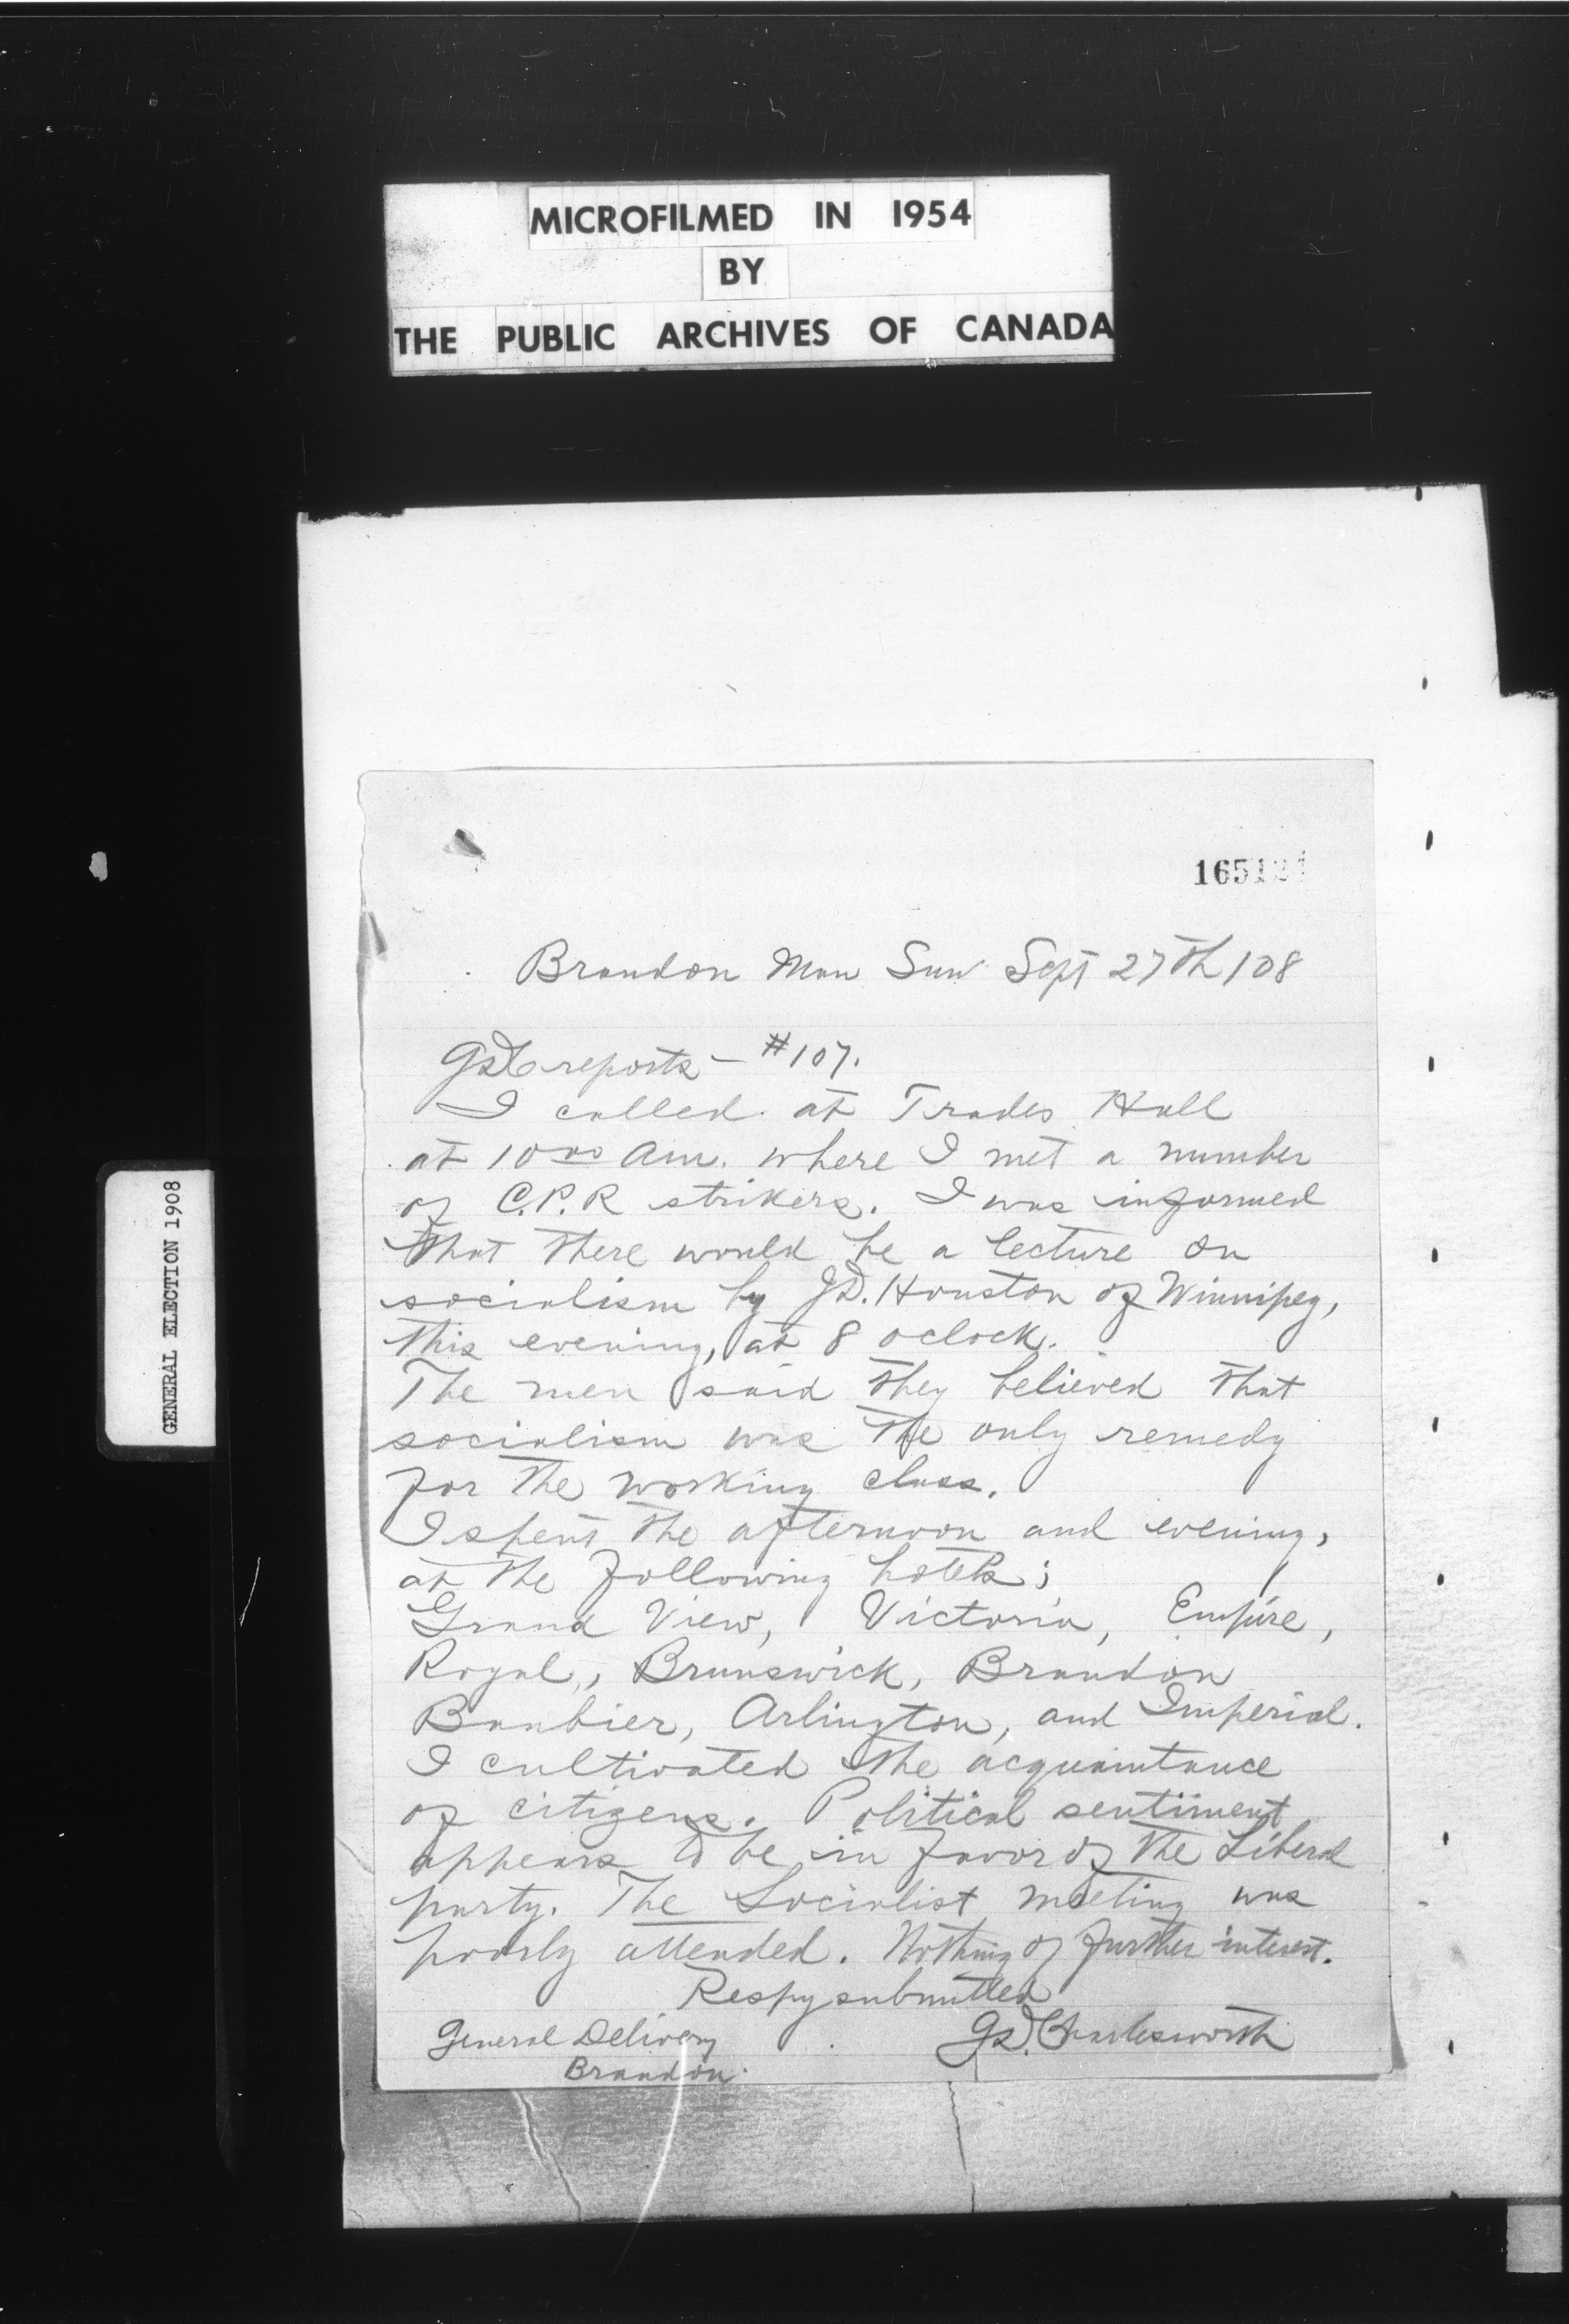 MICROFILMED IN 1954
BY
THE PUBLIC ARCHIVES OF CANADA
GENERAL ELECTION 1908
Brandon Man Sun Sept 27th / 08
reports - #107.
I called at Trades Hall
at 10 00 Am. where I met a number
of C.P.R strikers. I was informed
that there would be a lecture on
socialism by J.D. Houston of Winnipeg,
this evening, at 8 oclock.
The men said they believed that
socialism was the only remedy
for the working class.
I spent the afternoon and evening,
at the following hotels;
Grand View, Victoria, Empire,
Royal, Brunswick, Brandon
Beaubier, Arlington, and Imperial.
I cultivated the acquaintance
of citizens. Political sentiment
appears to be in favor of the Liberal
party. The Socialist meeting was
poorly attended. Nothing of further interest.
Respy submitted
General Delivery
Brandon.
Charlesworth